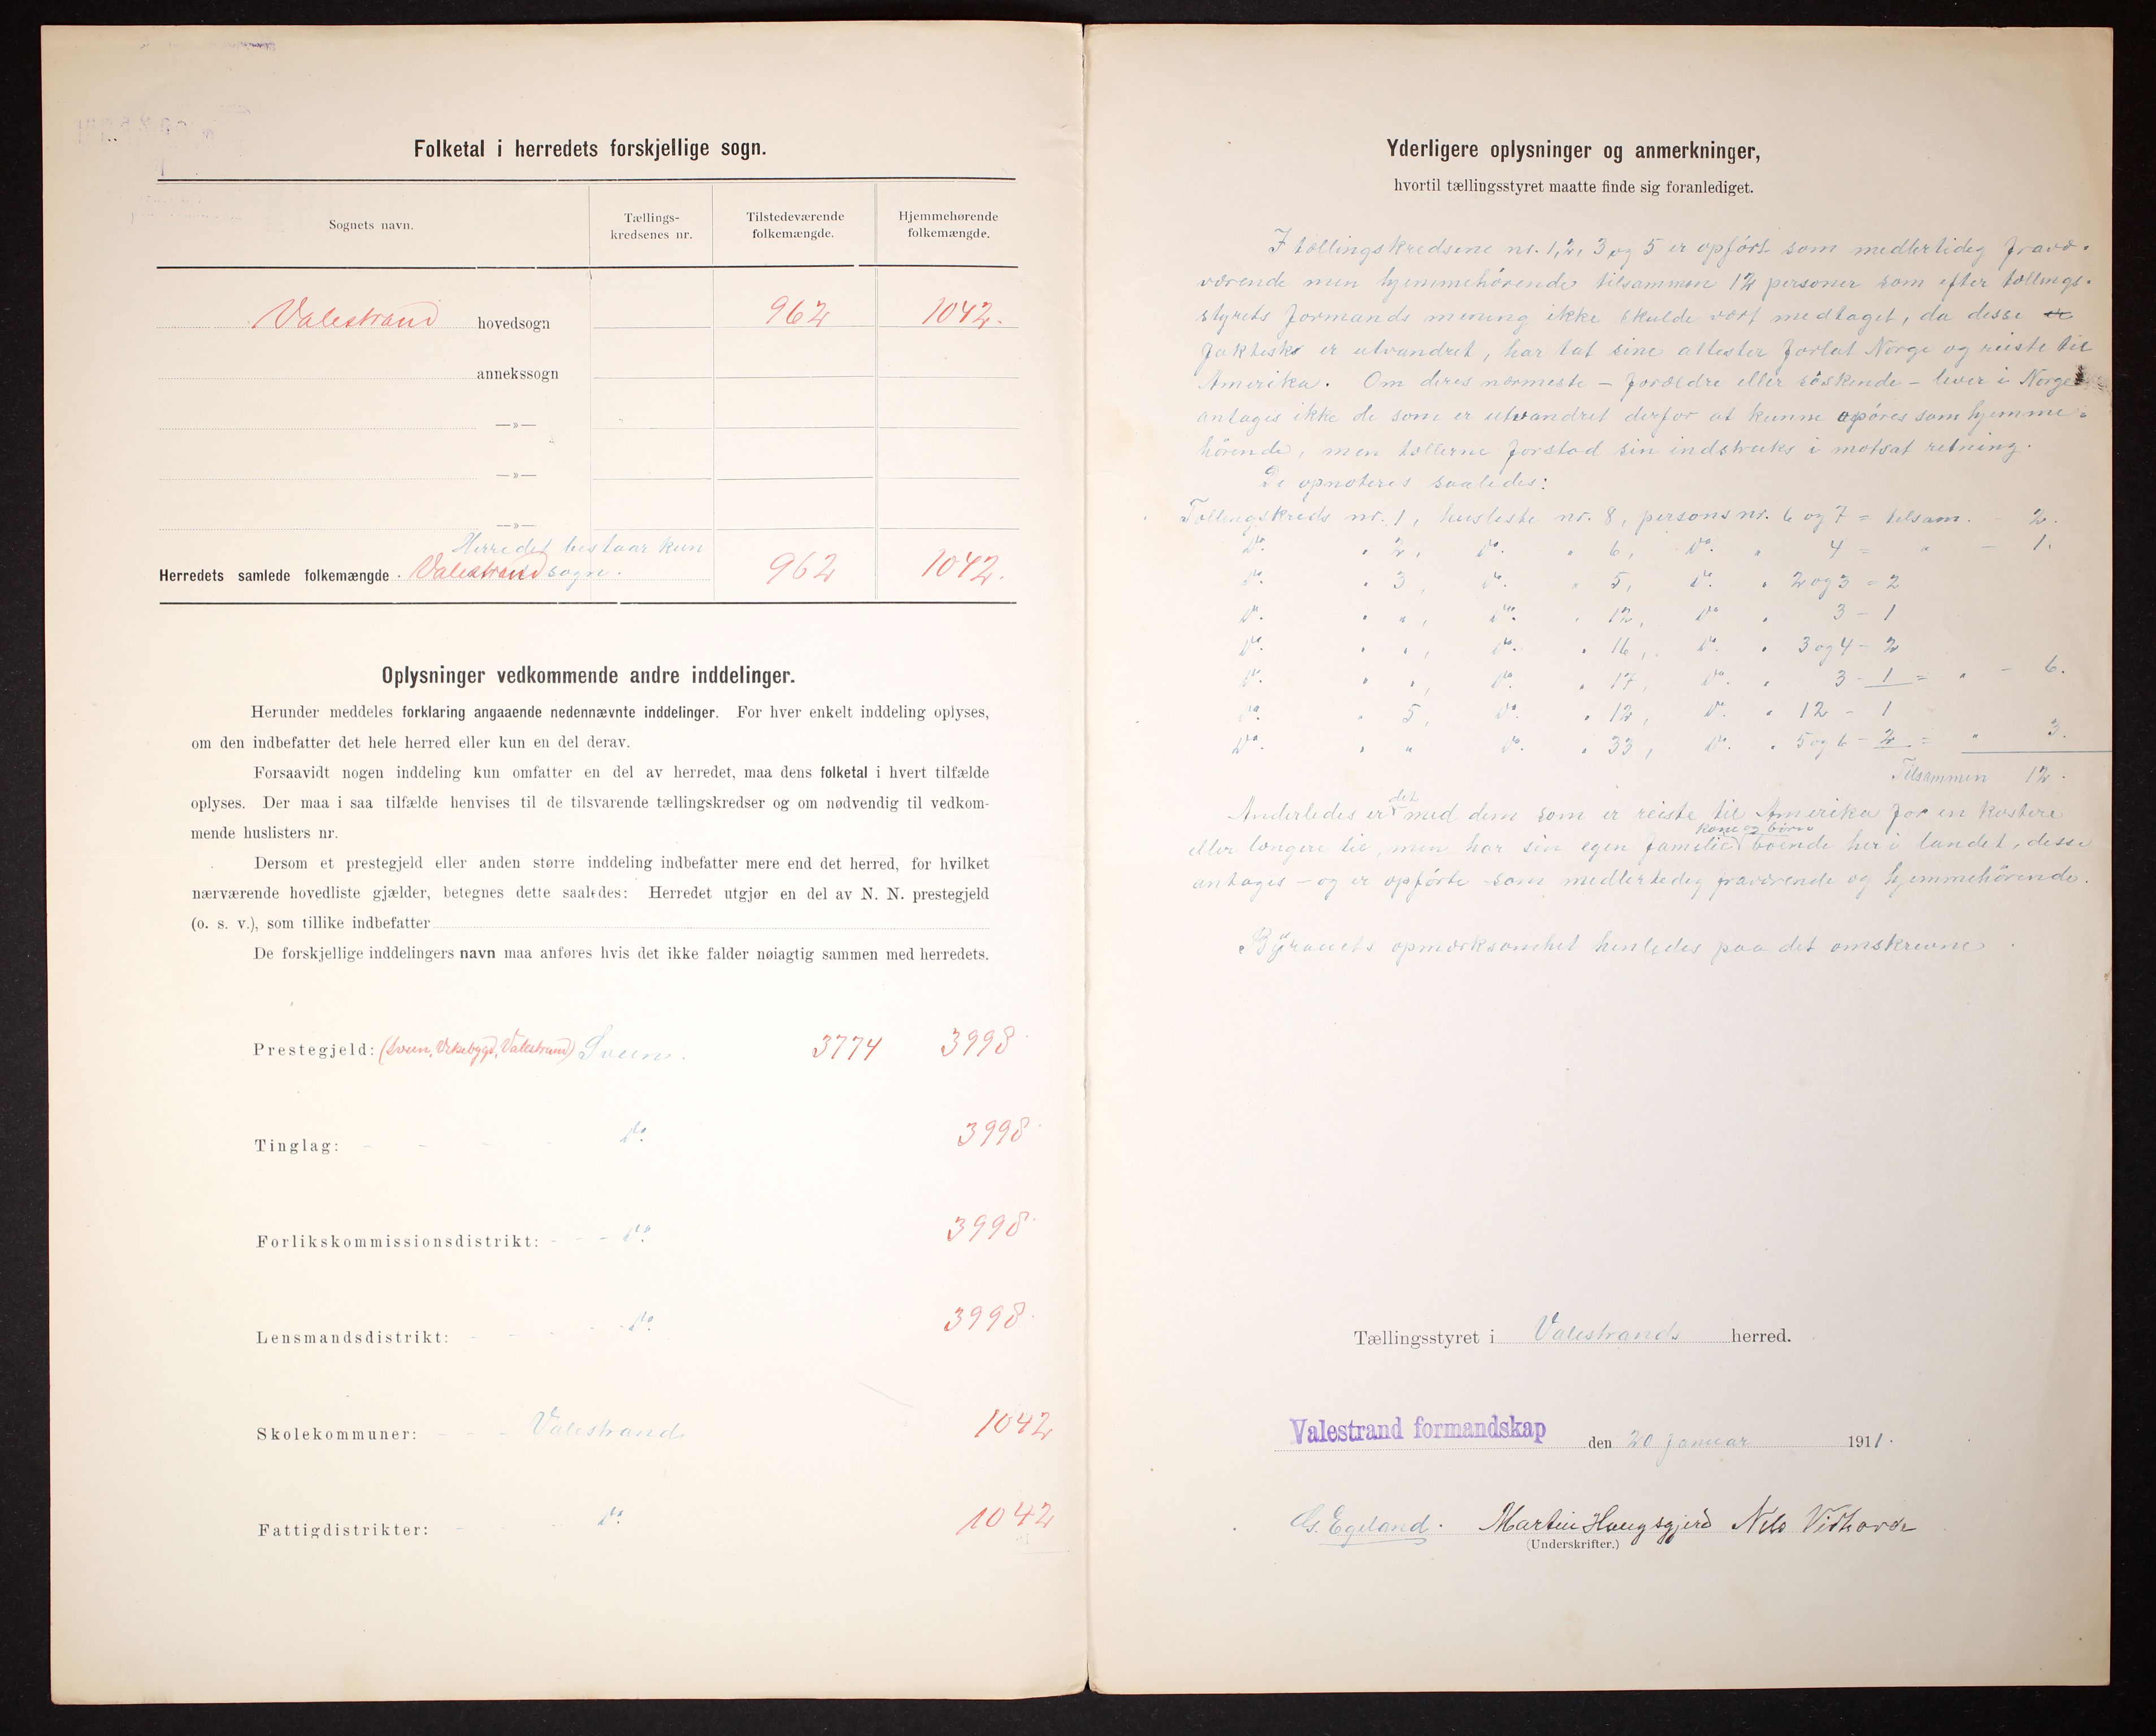 Folketal i herredets forskjellige sogn.
Sognets navn.
Tællings-
kredsenes nr.
Tilstedeværende
folkemængde.
Hjemmehørende
folkemængde.
Valestrand hovedsogn 962 1042.
annekssogn
—»—
—»—
—»—
Herredet bestaar kun
Herredets samlede folkemængde. Valestrand sogn. 962 1042.
Oplysninger vedkommende andre inddelinger.
Herunder meddeles forklaring angaaende nedennævnte inddelinger. For hver enkelt inddeling oplyses,
om den indbefatter det hele herred eller kun en del derav.
Forsaavidt nogen inddeling kun omfatter en del av herredet, maa dens folketal i hvert tilfælde
oplyses. Der maa i saa tilfælde henvises til de tilsvarende tællingskredser og om nødvendig til vedkom-
mende huslisters nr.
Dersom et prestegjeld eller anden større inddeling indbefatter mere end det herred, for hvilket
nærværende hovedliste gjælder, betegnes dette saaledes: Herredet utgjør en del av N. N. prestegjeld
(o. s. v.), som tillike indbefatter
De forskjellige inddelingers navn maa anføres hvis det ikke falder nøiagtig sammen med herredets.
Prestegjeld: (Sveen, Vikebygd, Valestrand) Sveen. 3774 3998.
Tinglag: - - - - do. 3998.
Forlikskommissionsdistrikt: - - - do. 3998.
Lensmandsdistrikt: - - - - do. 3998.
Skolekommuner: - - - Valestrand 1042
Fattigdistrikter: - - - do. 1042
Yderligere oplysninger og anmerkninger,
hvortil tællingsstyret maatte finde sig foranlediget.
I tællingskredsene nr. 1, 2, 3 og 5 er opført som medlertideg fravæ-
værende men hjemmehörende tilsammen 12 personer som efter tællings-
styrets formands mening ikke skulde vært medtaget, da desse er
faktiske er utvandret, har tat sine attester forlat Norge og reiste til
Amerika. Om deres nærmeste – forældre eller söskende – lever i Norge
antages ikke de som er utvandret derfor at kunne opföres som hjemme-
hörende, men tællerne forstod sin indstruks i motsat retning.
De opnoteres saaledes:
Tællingskreds nr. 1, husliste nr. 8, persons nr. 6 og 7 = tilsam. - 2.
Do. " 2, do. " 6, do. " 4 = " - 1.
Do. " 3, do. " 5, do. " 2 og 3 = 2
Do. " ", do. " 12, do. " 3 - 1
Do. " ", do. " 16, do. " 3 og 4 - 2
Do. " ", do. " 17, do. " 3 - 1 = " - 6.
Do. " 5, do. " 12, do. " 12 - 1
Do. " " do. " 33, do. " 5 og 6 - 2 = " 3.
Tilsammen 12.
Anderledes er det med dem som er reiste til Amerika for en kortere
eller længere tid, men har sin egen familie kone og börn boende her i landet, desse
antages – og er opförte som medlertedeg fraværende og hjemmehörende.
Byrauets opmærksomhet henledes paa det omskrevne.
Tællingsstyret i Valestrands herred.
Valestrand formandskap den 20 Januar 1911.
G. Egeland. Martin Haugsgjerd Nils
(Underskrifter.)